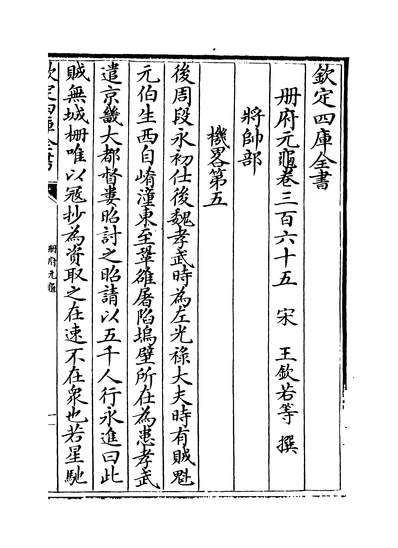 欽定四庫全書
冊府元龜卷三百六十五 宋 王欽若等 撰
將帥部
機畧第五
後周段永初仕後魏孝武時為左光祿大夫時有賊魁
元伯生西自崤潼東至鞏雒屠陷塢壁所在為患孝武
遣京畿大都督婁昭討之昭請以五千人行永進曰此
賊無城柵唯以冦抄為資取之在速不在衆也若星馳
欽定四庫全書
冊府元龜
一